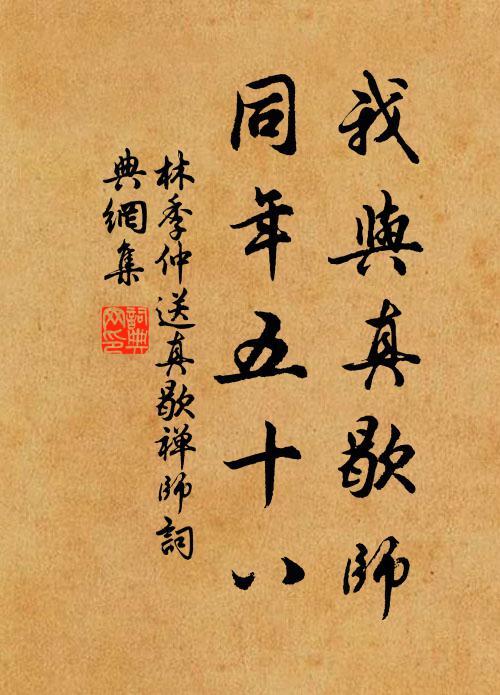 我與真歇師
同年五十八
林季仲送真歇禅師詞
典網集
詞典
网印